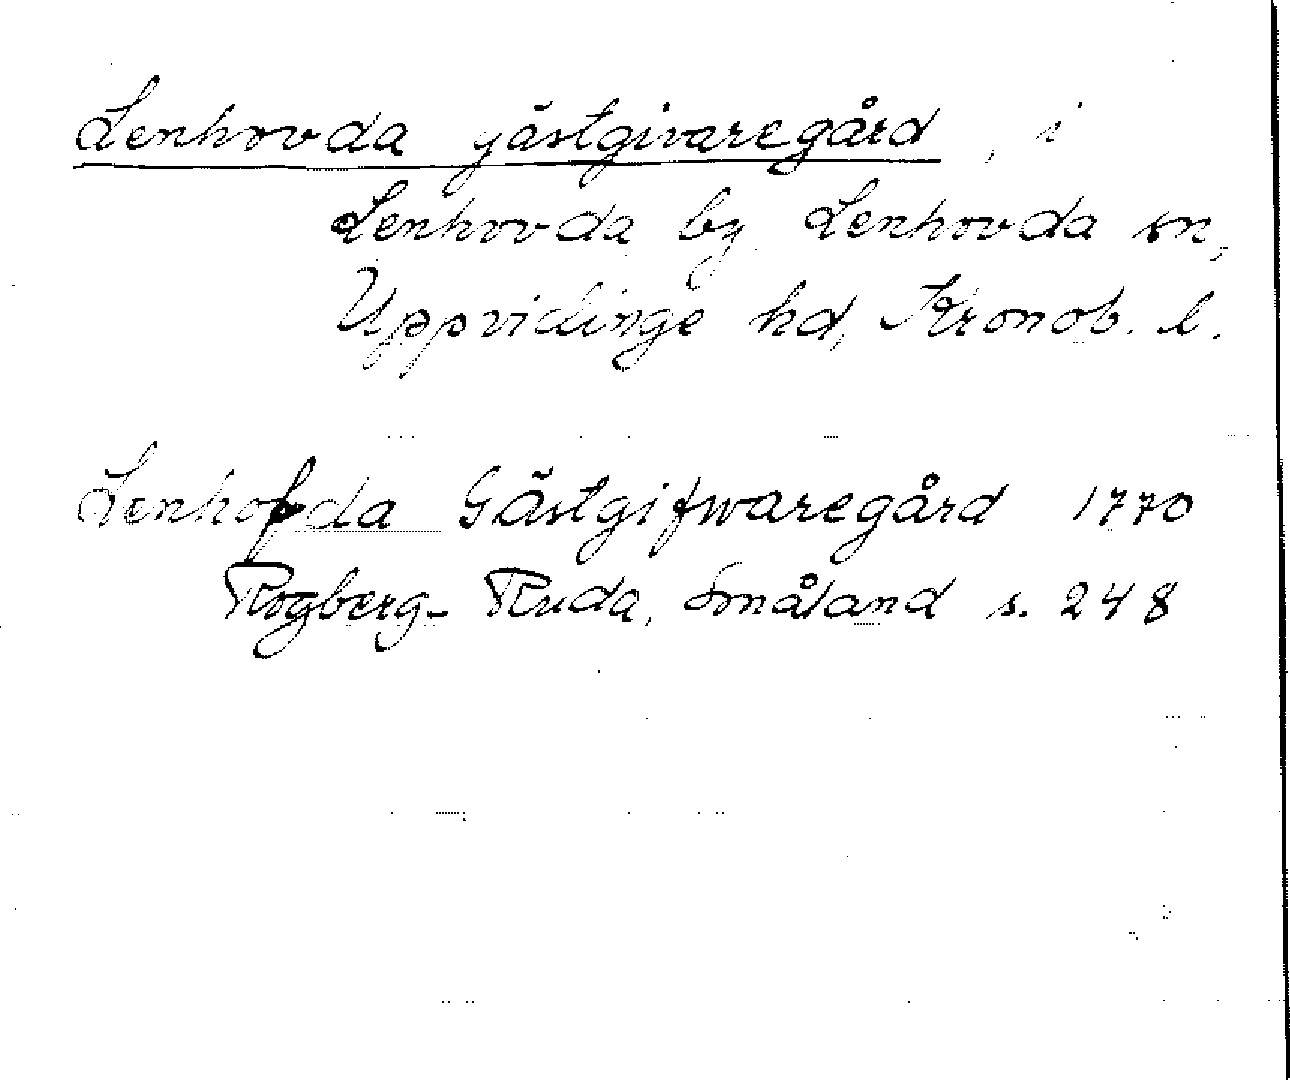 Lenhovda gästgivaregård, i
Lenhovda by, Lenhovda sn,
Uppvidinge hd, Kronob. l.
Lenhofda Gästgifwaregård 1770
Rogberg-Ruda, Småland s. 248